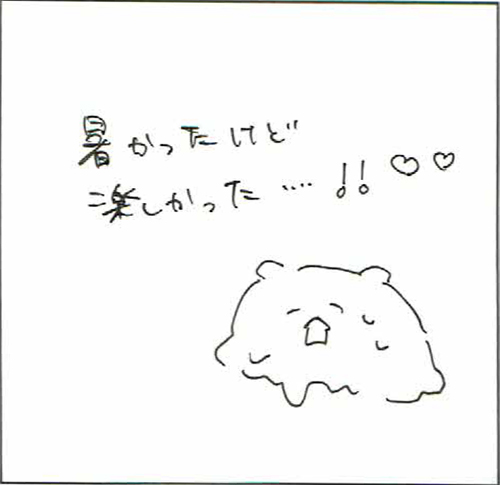 暑かったけど
楽しかった…. !! ♡♡